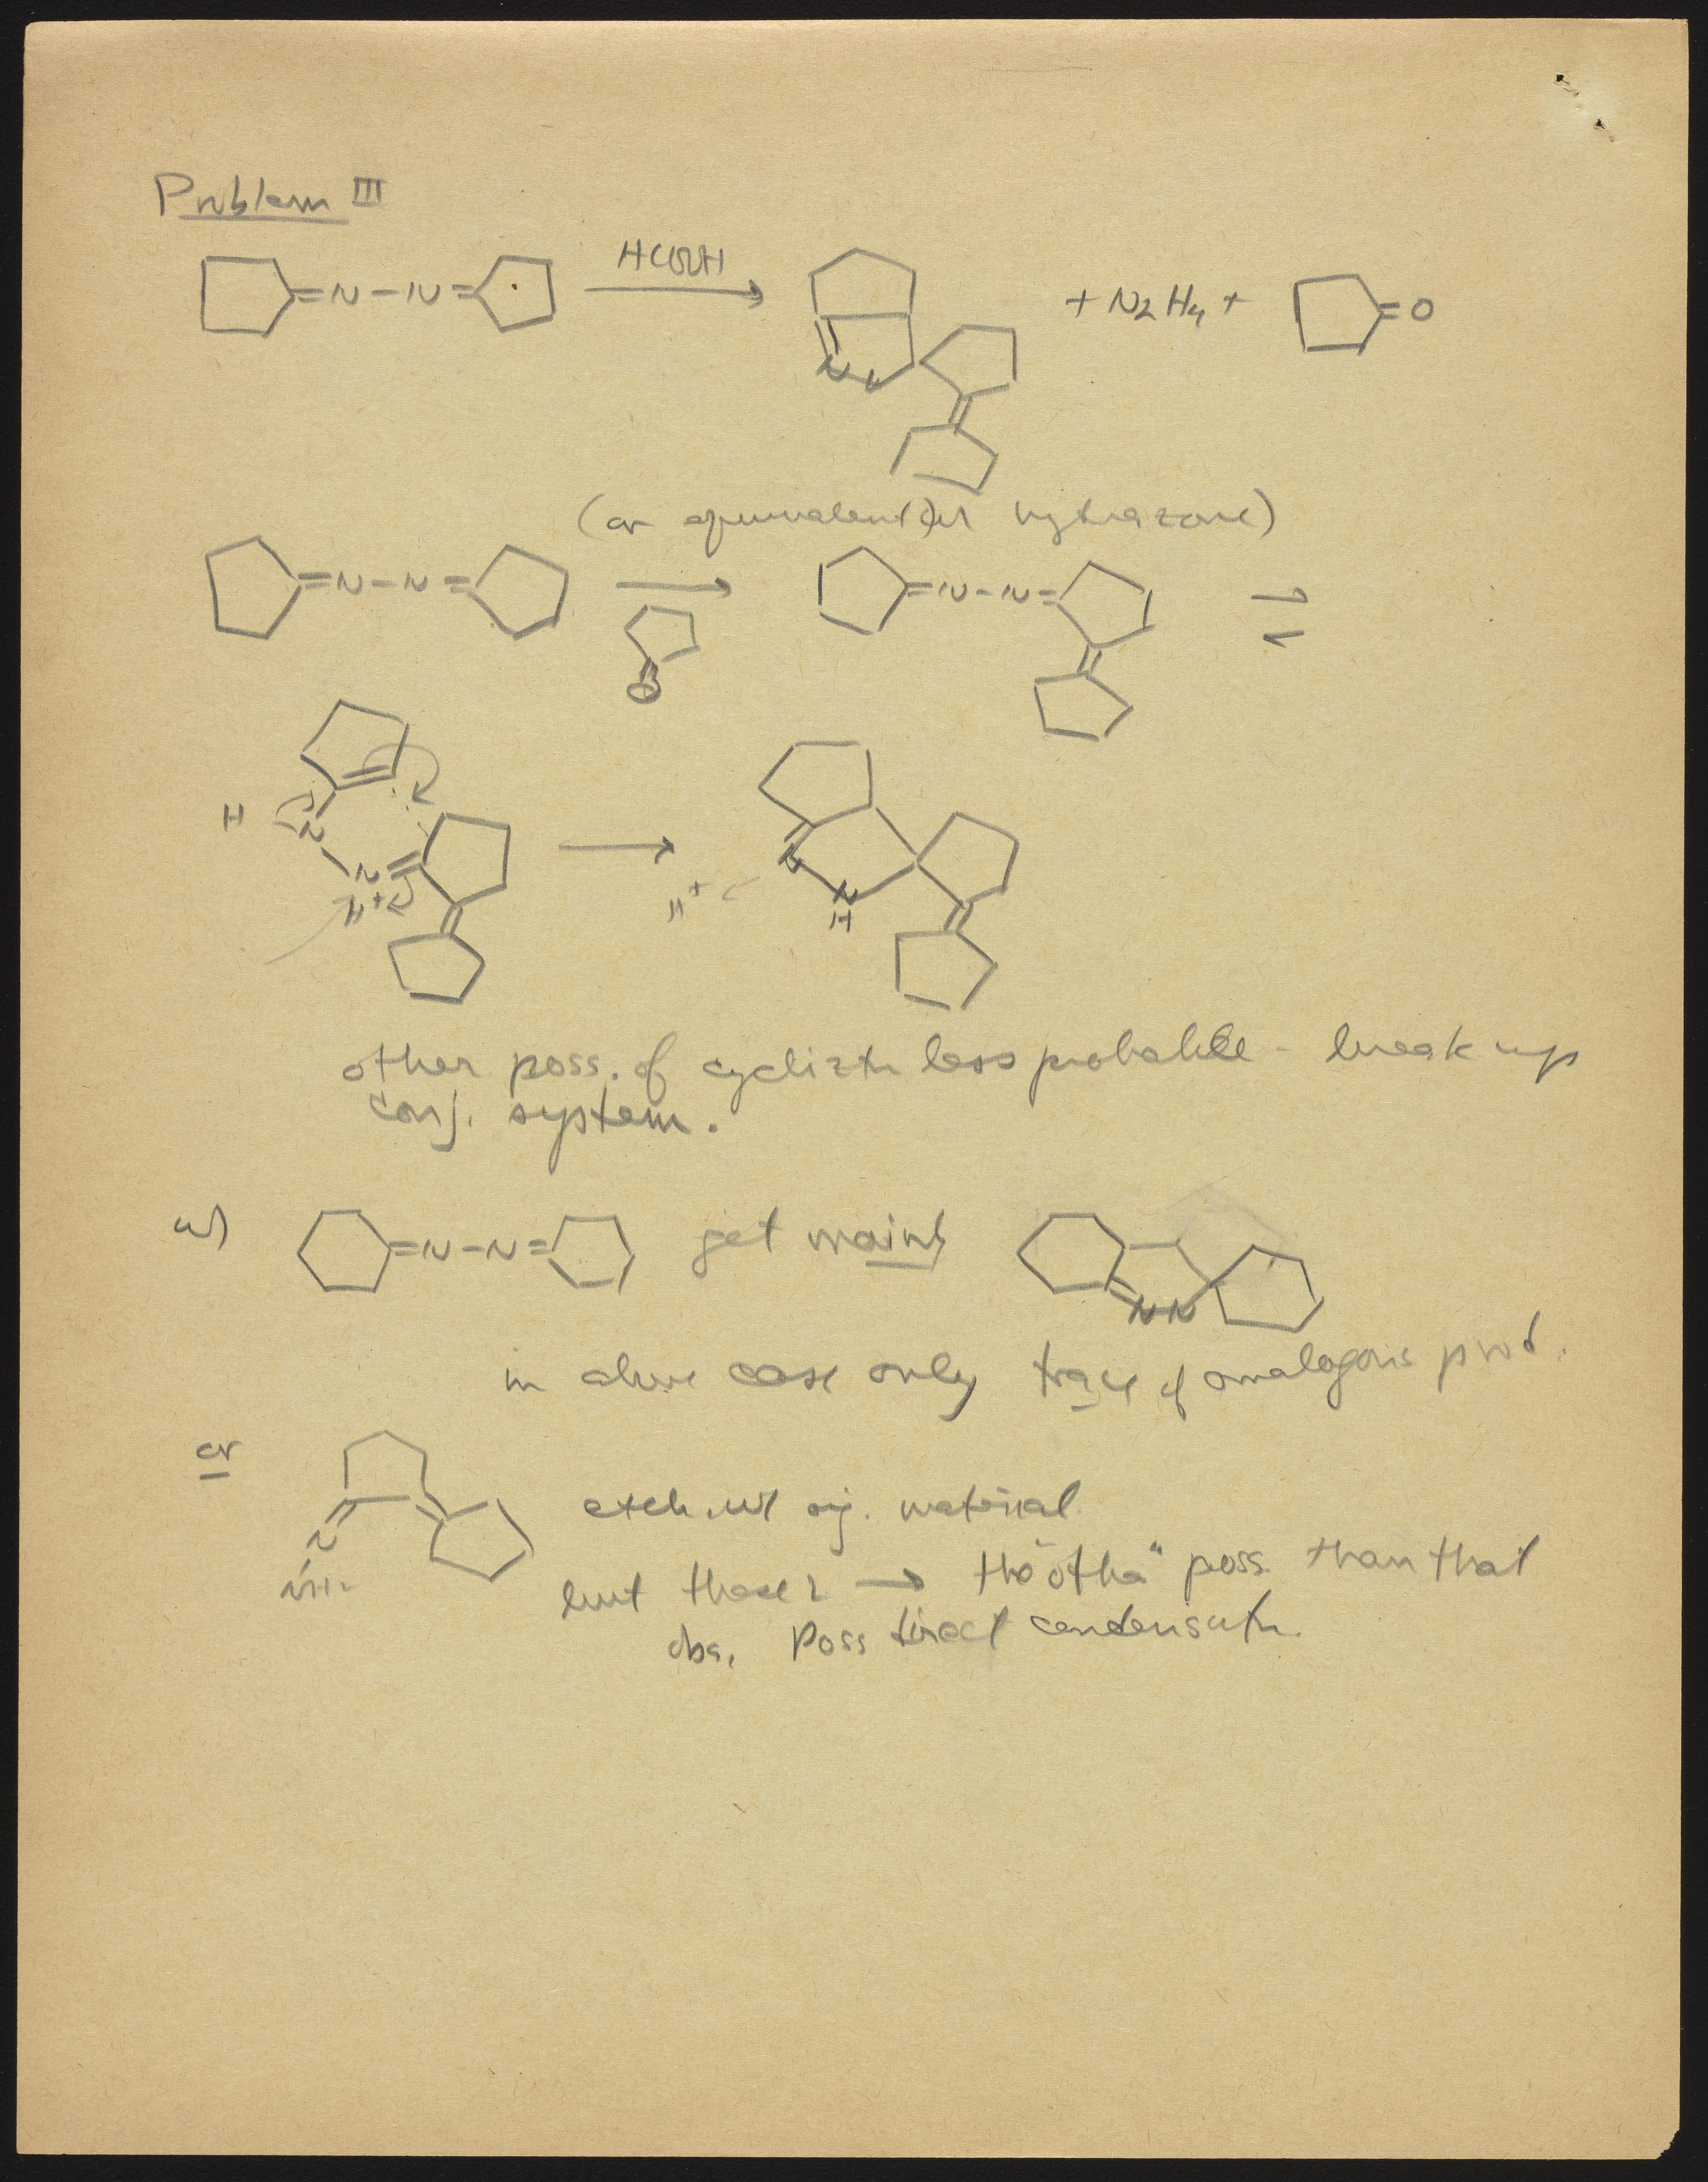 Problem III
=N-N= HCOOH N N + N2H4 + =O
(or equivalent hydrazone)
=N-N= O =N-N=
H N N H+ H+ N N H
other poss. of cycliztn less probable - break up
conj. system.
w) =N-N= get mainly N N
in above case only trace of analogous prod.
or N NH2 exch. w/ orig. material
but these 2 → the "other" poss. than that
obs. Poss direct condensatn.